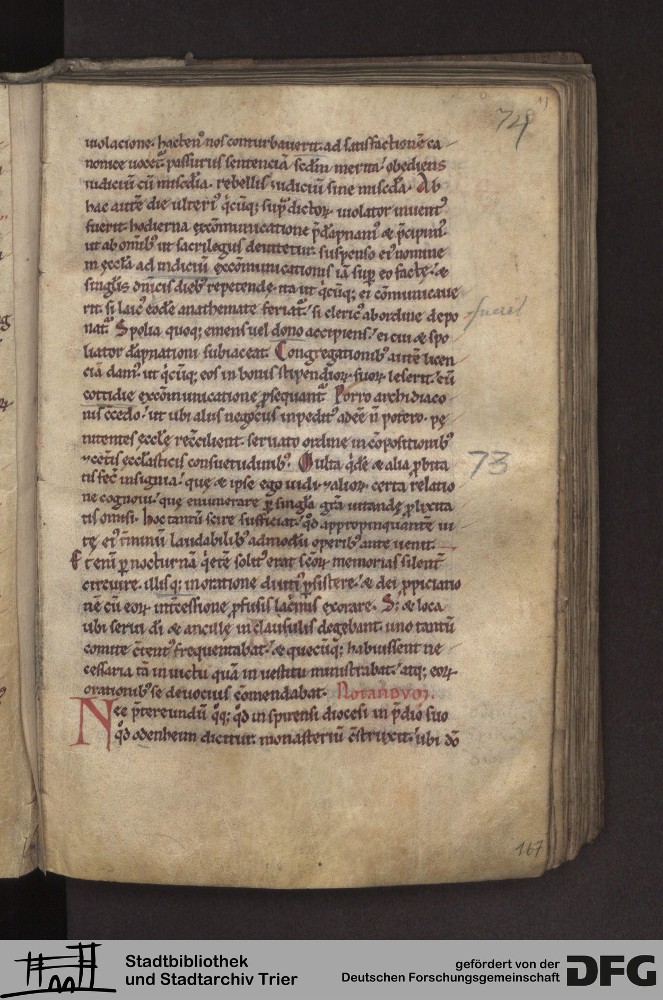 74
uiolacione. hacten⁹ nos conturbauerit. ad satisfactionē ca
nonice uocet᷑. passurus sentenciā scdm merita. obediens
iudiciū cū miscdia. rebellis iudiciū sine miscdia. Ab
hac autē die ulteri⁹ q̇cūq; sup̄dictoꝝ uiolator inuent⁹
fuerit. hodierna excōmunicatione p̄dāpnam⁹ & p̄cipim⁹
ut ab omib⁹ ut sacrilegus deuitetur. suspenso ei⁹ nomine
in eccl̄a ad indiciū excōmunicationis iā sup eo factę. &
singlis dnicis dieb⁹ repetendę. ita ut q̇cūq; ei cōmunicaue
rit. si laic⁹ eodē anathemate feriat᷑. si cleric⁹ ab ordine depo
nat᷑. Spolia quoq; emens uel dono accipiens. ei cui & spo
liator dāpnationi subiaceat. Congregationib⁹ autē licen
ciā dam⁹. ut q̇cūq; eos in bonis stipendioꝝ suoꝝ leserit. eū
cottidie excōmunicatione ꝑsequant᷑. Porro archidiaco
nis ccedo. ut ubi alius negocius inpedit⁹ adeē n̄ potero. pę
nitentes eccl̄ę recc̄ilient. seruato ordine in cōpositionib⁹
& cet̄is eccl̄asticis consuetudinib⁹. Multa q̇dē & alia ꝓbita
tis fec̄ insignia. quę & ipse ego uidi. & alioꝝ certa relatio
ne cognoui. quę enumerare ꝑ singla grā uitandę ꝓlixita
tis omisi. hoc tantū scire sufficiat. qd̄ appropinquantē ui
tę ei⁹ t̄minū laudabilib⁹ admodū operib⁹ ante uenit.
Etenī ꝑ nocturnā q̇etē solit⁹ erat scōꝝ memorias silent̄
circuire. illisq; in oratione diuti⁹ ꝑsistere. & dei ꝓpiciatio
nē cū eoꝝ int̄cessione ꝓfusis lac̄mis exorare. S; & loca
ubi serui di & ancillę in clausulis degebant. uno tantū
comite c̄tent⁹ frequentabat. & quecūq; habuissent ne
cessaria tā in uictu quā in uestitu ministrabat. atq; eoꝝ
orationib⁹ se deuocius cōmendabat. Notandum.
Nec p̄tereundū q̇q; qd̄ in spirensi diocesi in p̄dio suo
qd̄ odenheim dicitur. monasteriū c̄struxit. ubi dō
fuerit
73
167
Stadtbibliothek
und Stadtarchiv Trier
gefördert von der
Deutschen Forschungsgemeinschaft
DFG